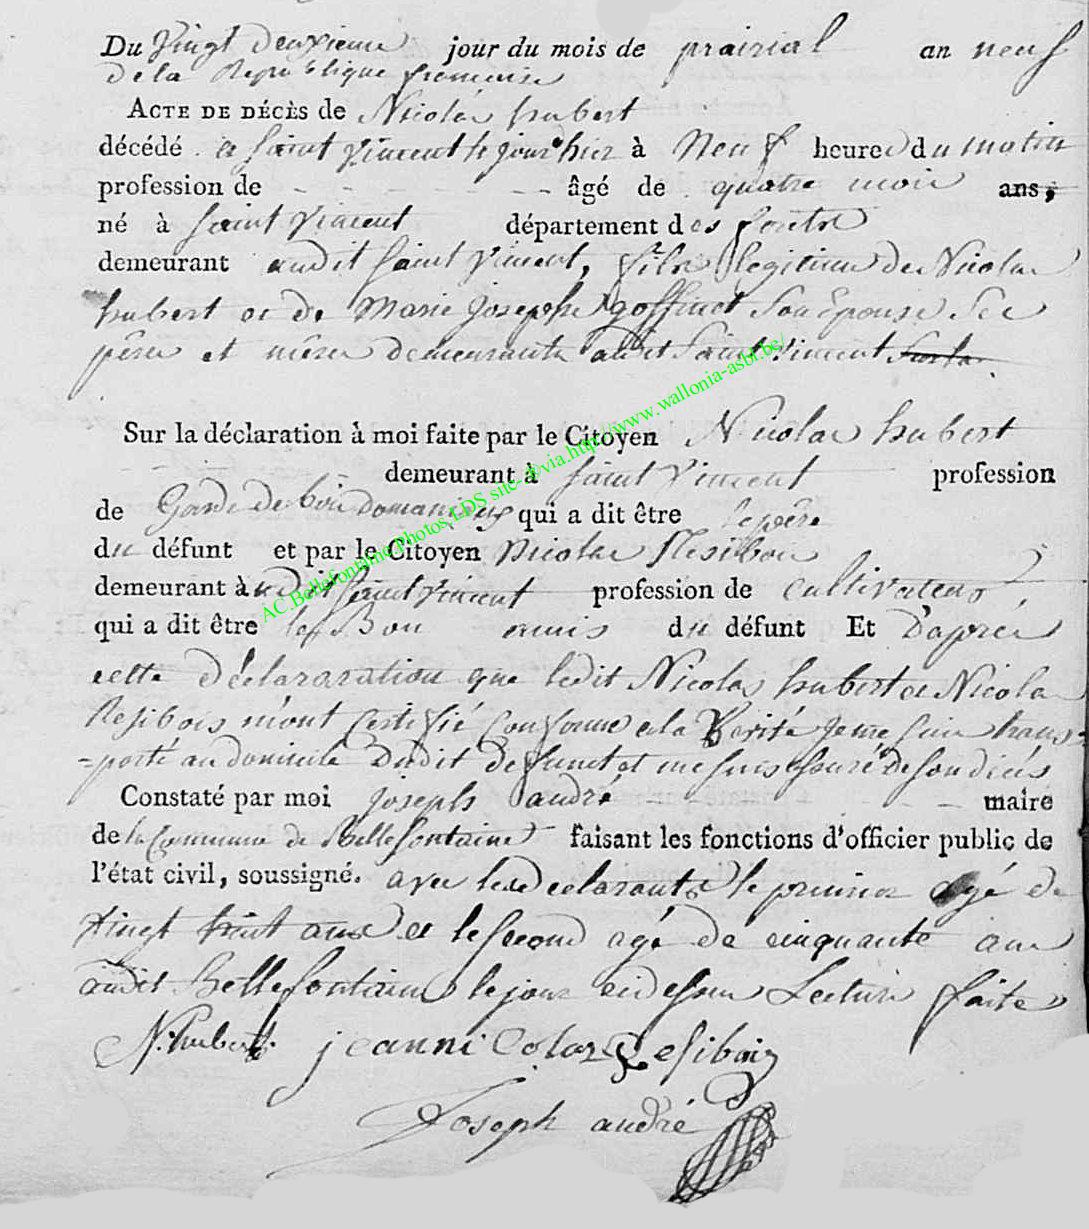 Du Vingt deuxieme jour du mois de prairial an neuf
de la Republique francaise
ACTE DE DÉCÈS de Nicolas hubert
décédé a Saint Vincent le jour d'hier à Neuf heures du matin
profession de - - - - - - - âgé de quatre mois ans,
né à Saint Vincent département des forêts
demeurant audit Saint Vincent, fils legitime de Nicolas
hubert et de Marie Josephe goffinet Son Epouse Ses
pères et mères demeurants audit Saint Vincent
Sur la déclaration à moi faite par le Citoyen Nicolas hubert
demeurant à Saint Vincent profession
de Garde de bois domaniaux qui a dit être le père
du défunt et par le Citoyen Nicolas Resibois
demeurant à audit Saint Vincent profession de cultivateur
qui a dit être le Bon amis du défunt Et D'après
cette Déclararation que ledit Nicolas hubert et Nicola
Resibois m'ont certifié conforme a la Verité Je me suis trans=
=porté au domicile Dudit Defunct et me suis assuré De son décés
Constaté par moi Joseph andré maire
de la Commune de Bellefontaine faisant les fonctions d'officier public de
l'état civil, soussigné. avec les declarants le premier agé de
Vingt huit ans et le second agé de cinquante ans
audit Bellefontaine le jour cidessus Lecture faite
N. hubert jeannicolas Resibois
Joseph andré
AC.Bellefontaine.Photos.LDS site- @via.http://www.wallonia-asbl.be/